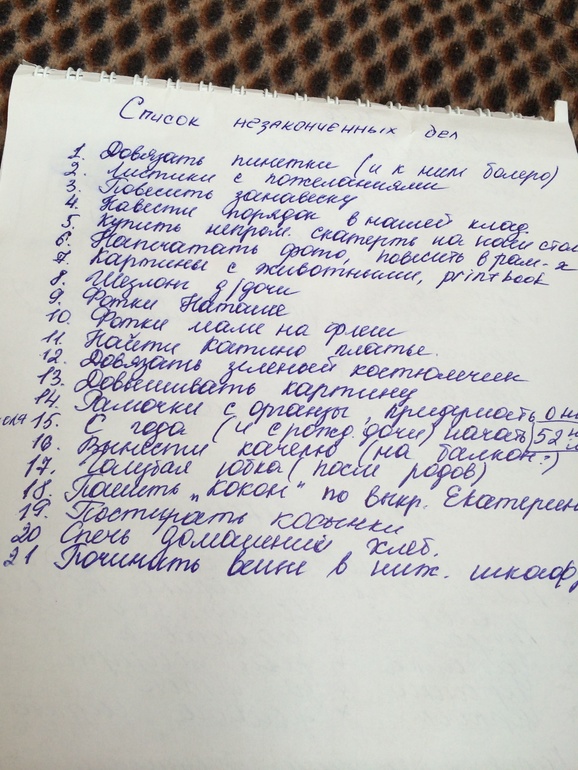 Список незаконченных дел
1. Довязать пинетки (и к ним болеро)
2. Листики с пожеланиями
3. Повесить занавеску
4. Навести порядок в нашей клад.
5. Купить непром. скатерть на наш стол
6. Напечатать фото, повесить в рам-х
7. Картины с животными, printbook
8. Шезлонг д/дочи
9. Фотки Наташе
10. Фотки маме на флеш
11. Найти Катино платье.
12. Довязать зеленый костюмчик
13. Довышивать картину
14. Рамочки с органзы, придумать
15. С года (и с рожд. дочи) начать 52
16. Вынести (на балкон?)
17. Голубая юбка (после родов)
18. Пошить „кокон" по выкр. Екатерин
19. Постирать косынки
20 Спечь домашний хлеб.
21 Починить в ниж. шкафу